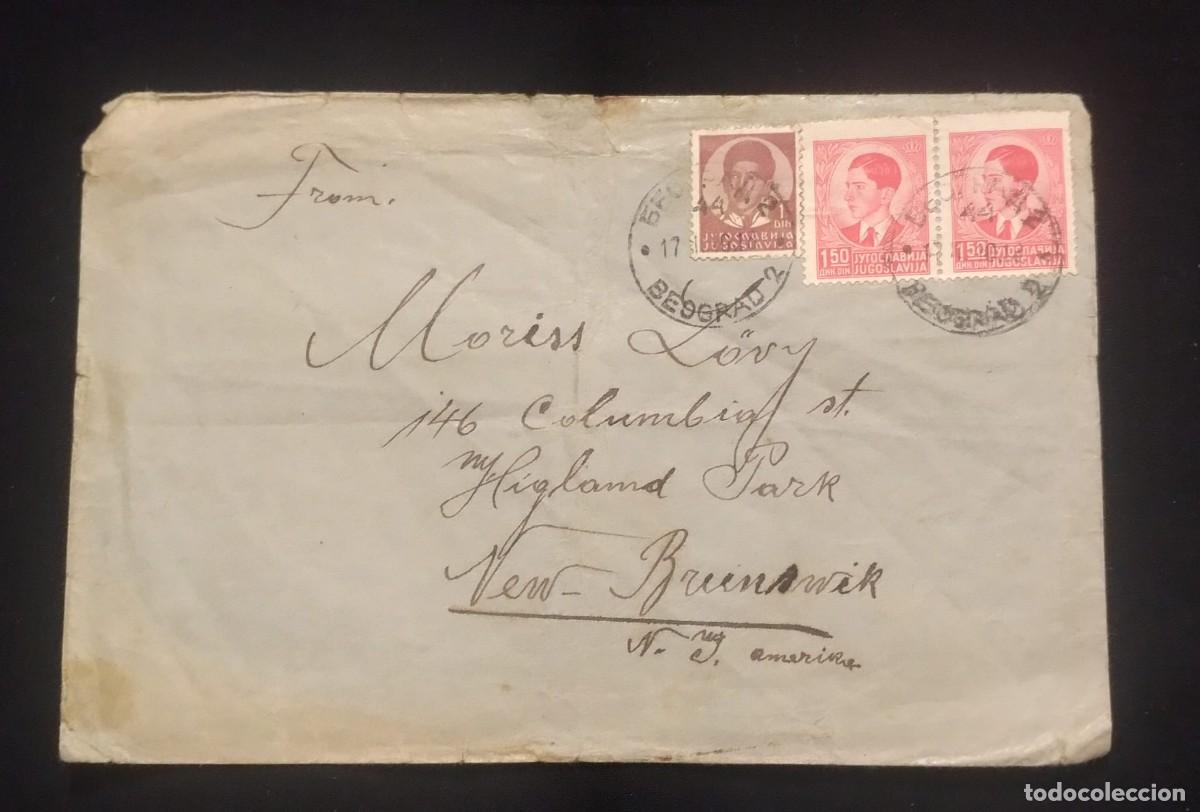 From.
1
DIN
ЈУГОСЛАВИЈА
JUGOSLAVIJA
1.50 ЈУГОСЛАВИЈА
ДИН. DIN JUGOSLAVIJA
1.50 ЈУГОСЛАВИЈА
ДИН. DIN JUGOSLAVIJA
4A
17
BEOGRAD 2
4A
BEOGRAD 2
Moriss Lövy
146 Columbia st.
Higland Park
New-Brunswik
N. J. amerika
todocoleccion